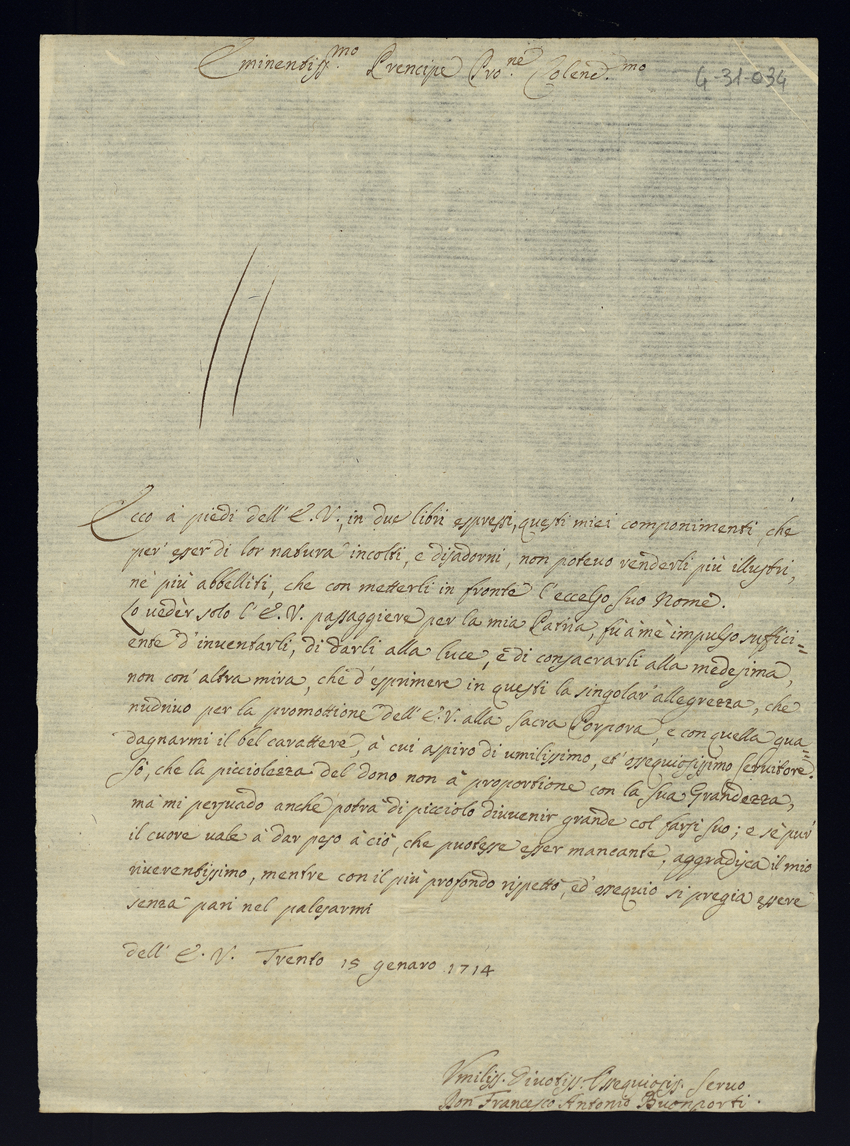 Eminentiss.mo Prencipe Pro.ne Colend.mo
4-31-034
Ecco à piedi dell' E. V., in due libri espressi, questi miei componimenti, che
per esser di lor natura incolti, e disadorni, non potevo renderli più illustri,
nè più abbelliti, che con metterli in fronte l'eccelso suo Nome.
Lo vedèr solo l'E. V. passaggiere per la mia Patria, fù à mè impulso suffici=
ente d'inventarli, di darli alla luce, e di consacrarli alla medesima,
non con' altra mira, che d'esprimere in questi la singolar' allegrezza, che
nudrivo per la promottione dell' E. V. alla Sacra Porpora, e con quella gua=
dagnarmi il bel carattere, à cui aspiro di umilissimo, et' ossequiosissimo servitore.
Sò, che la picciolezza del dono non à proportione con la sua Grandezza,
mà mi persuado anche potrà di picciolo divvenir grande col farsi suo; e sè pur'
il cuore vale à dar peso à ciò, che puotesse esser mancante, aggradisca il mio
riverentissimo, mentre con il più profondo rispetto, ed' ossequio si pregia essere
senza pari nel palesarmi
dell' E. V. Trento 15 genaro 1714
Umiliss. Divotiss. Ossequiosis. Servo
Don Francesco Antonio Buonporti.